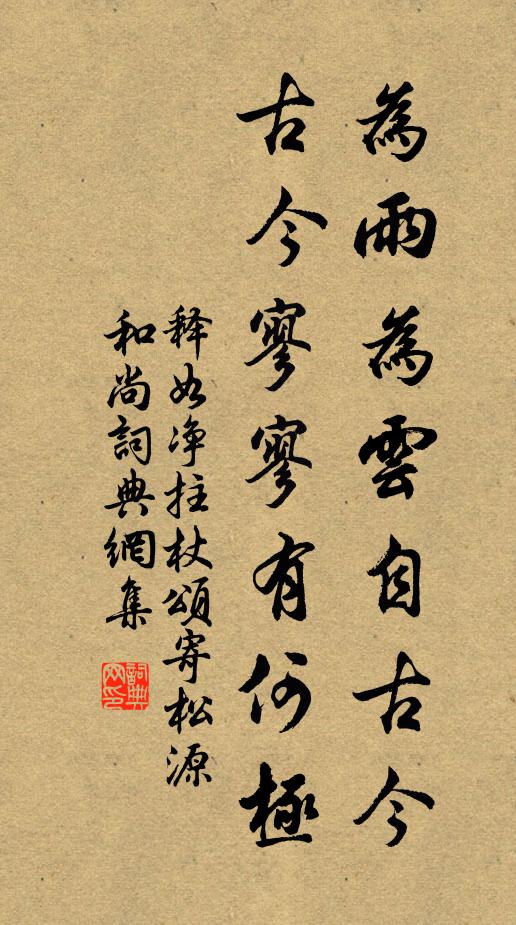 為雨為雲自古今
古今寥寥有何極
释如净拄杖頌寄松源
和尚詞典網集
詞典
网印